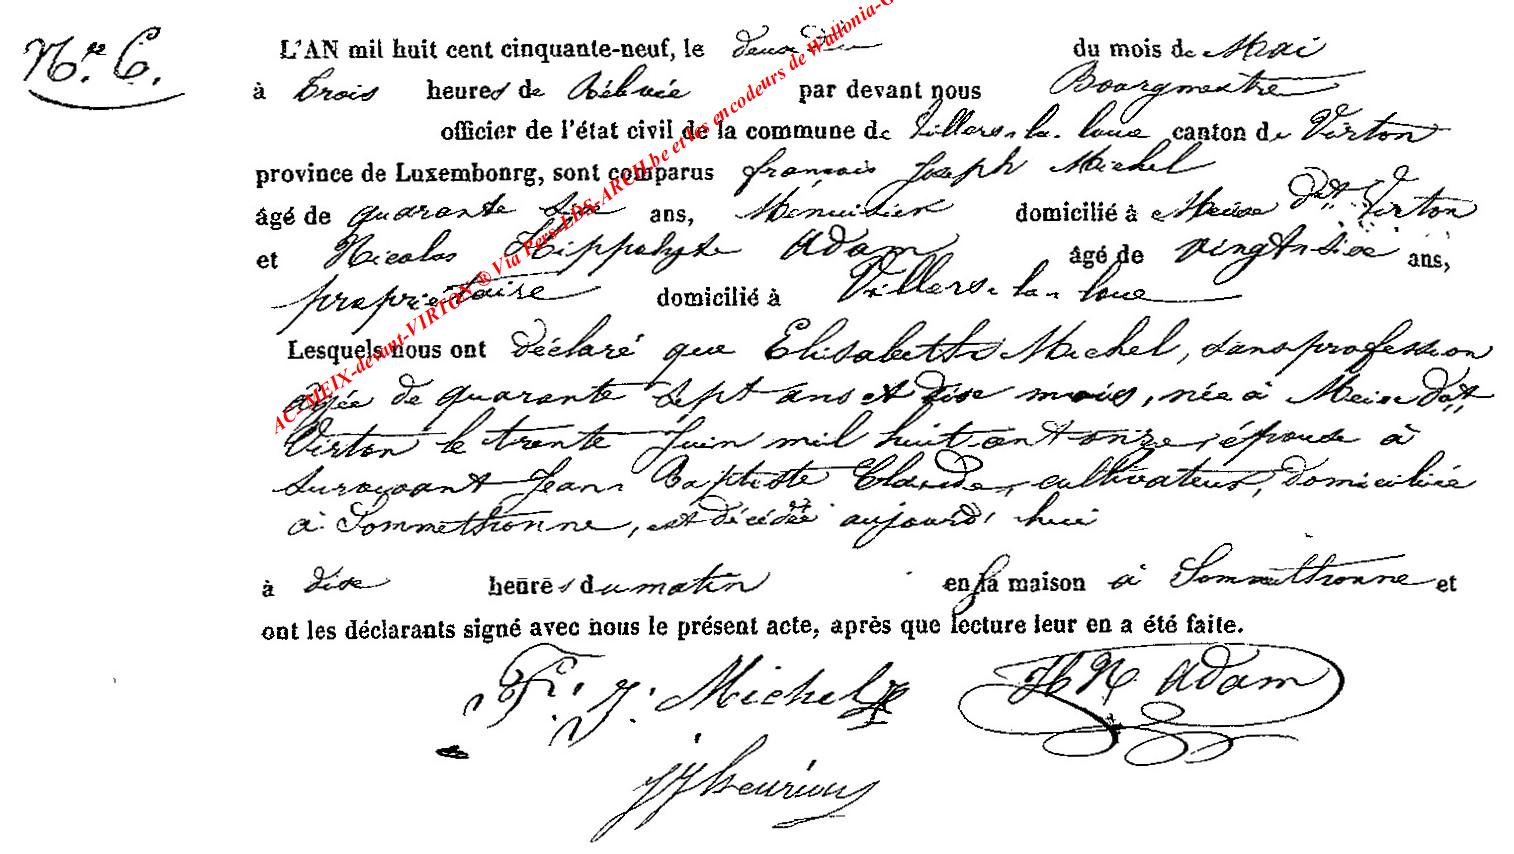 Nre 6.
L'AN mil huit cent cinquante-neuf, le deux du mois de Mai
à trois heures de Rélevée par devant nous Bourgmestre
officier de l'état civil de la commune de Villers-la-loue canton de Virton
province de Luxembonrg, sont comparus françois Joseph Michel
âgé de quarante six ans, Menuisier domicilié à Meixe dvt Virton
et Nicolas Hippolyte Adam âgé de vingt-six ans,
propriétaire domicilié à Villers-la-loue
Lesquels nous ont déclaré que Elisabeth Michel, sans profession
agée de quarante sept ans et dix mois, née à Meix dvt
Virton le trente Juin mil huit cent onze, épouse à
survivant Jean Baptiste Claude, cultivateur, domiciliée
à Sommethonne, est décédée aujourd'hui
à dix heures du matin en sa maison à Sommethonne et
ont les déclarants signé avec nous le présent acte, après que lecture leur en a été faite.
F. J. Michel HN Adam
AC-MEIX-devant-VIRTON ® Via Pers-LDS-ARCH.be et les encodeurs de Wallonia-G